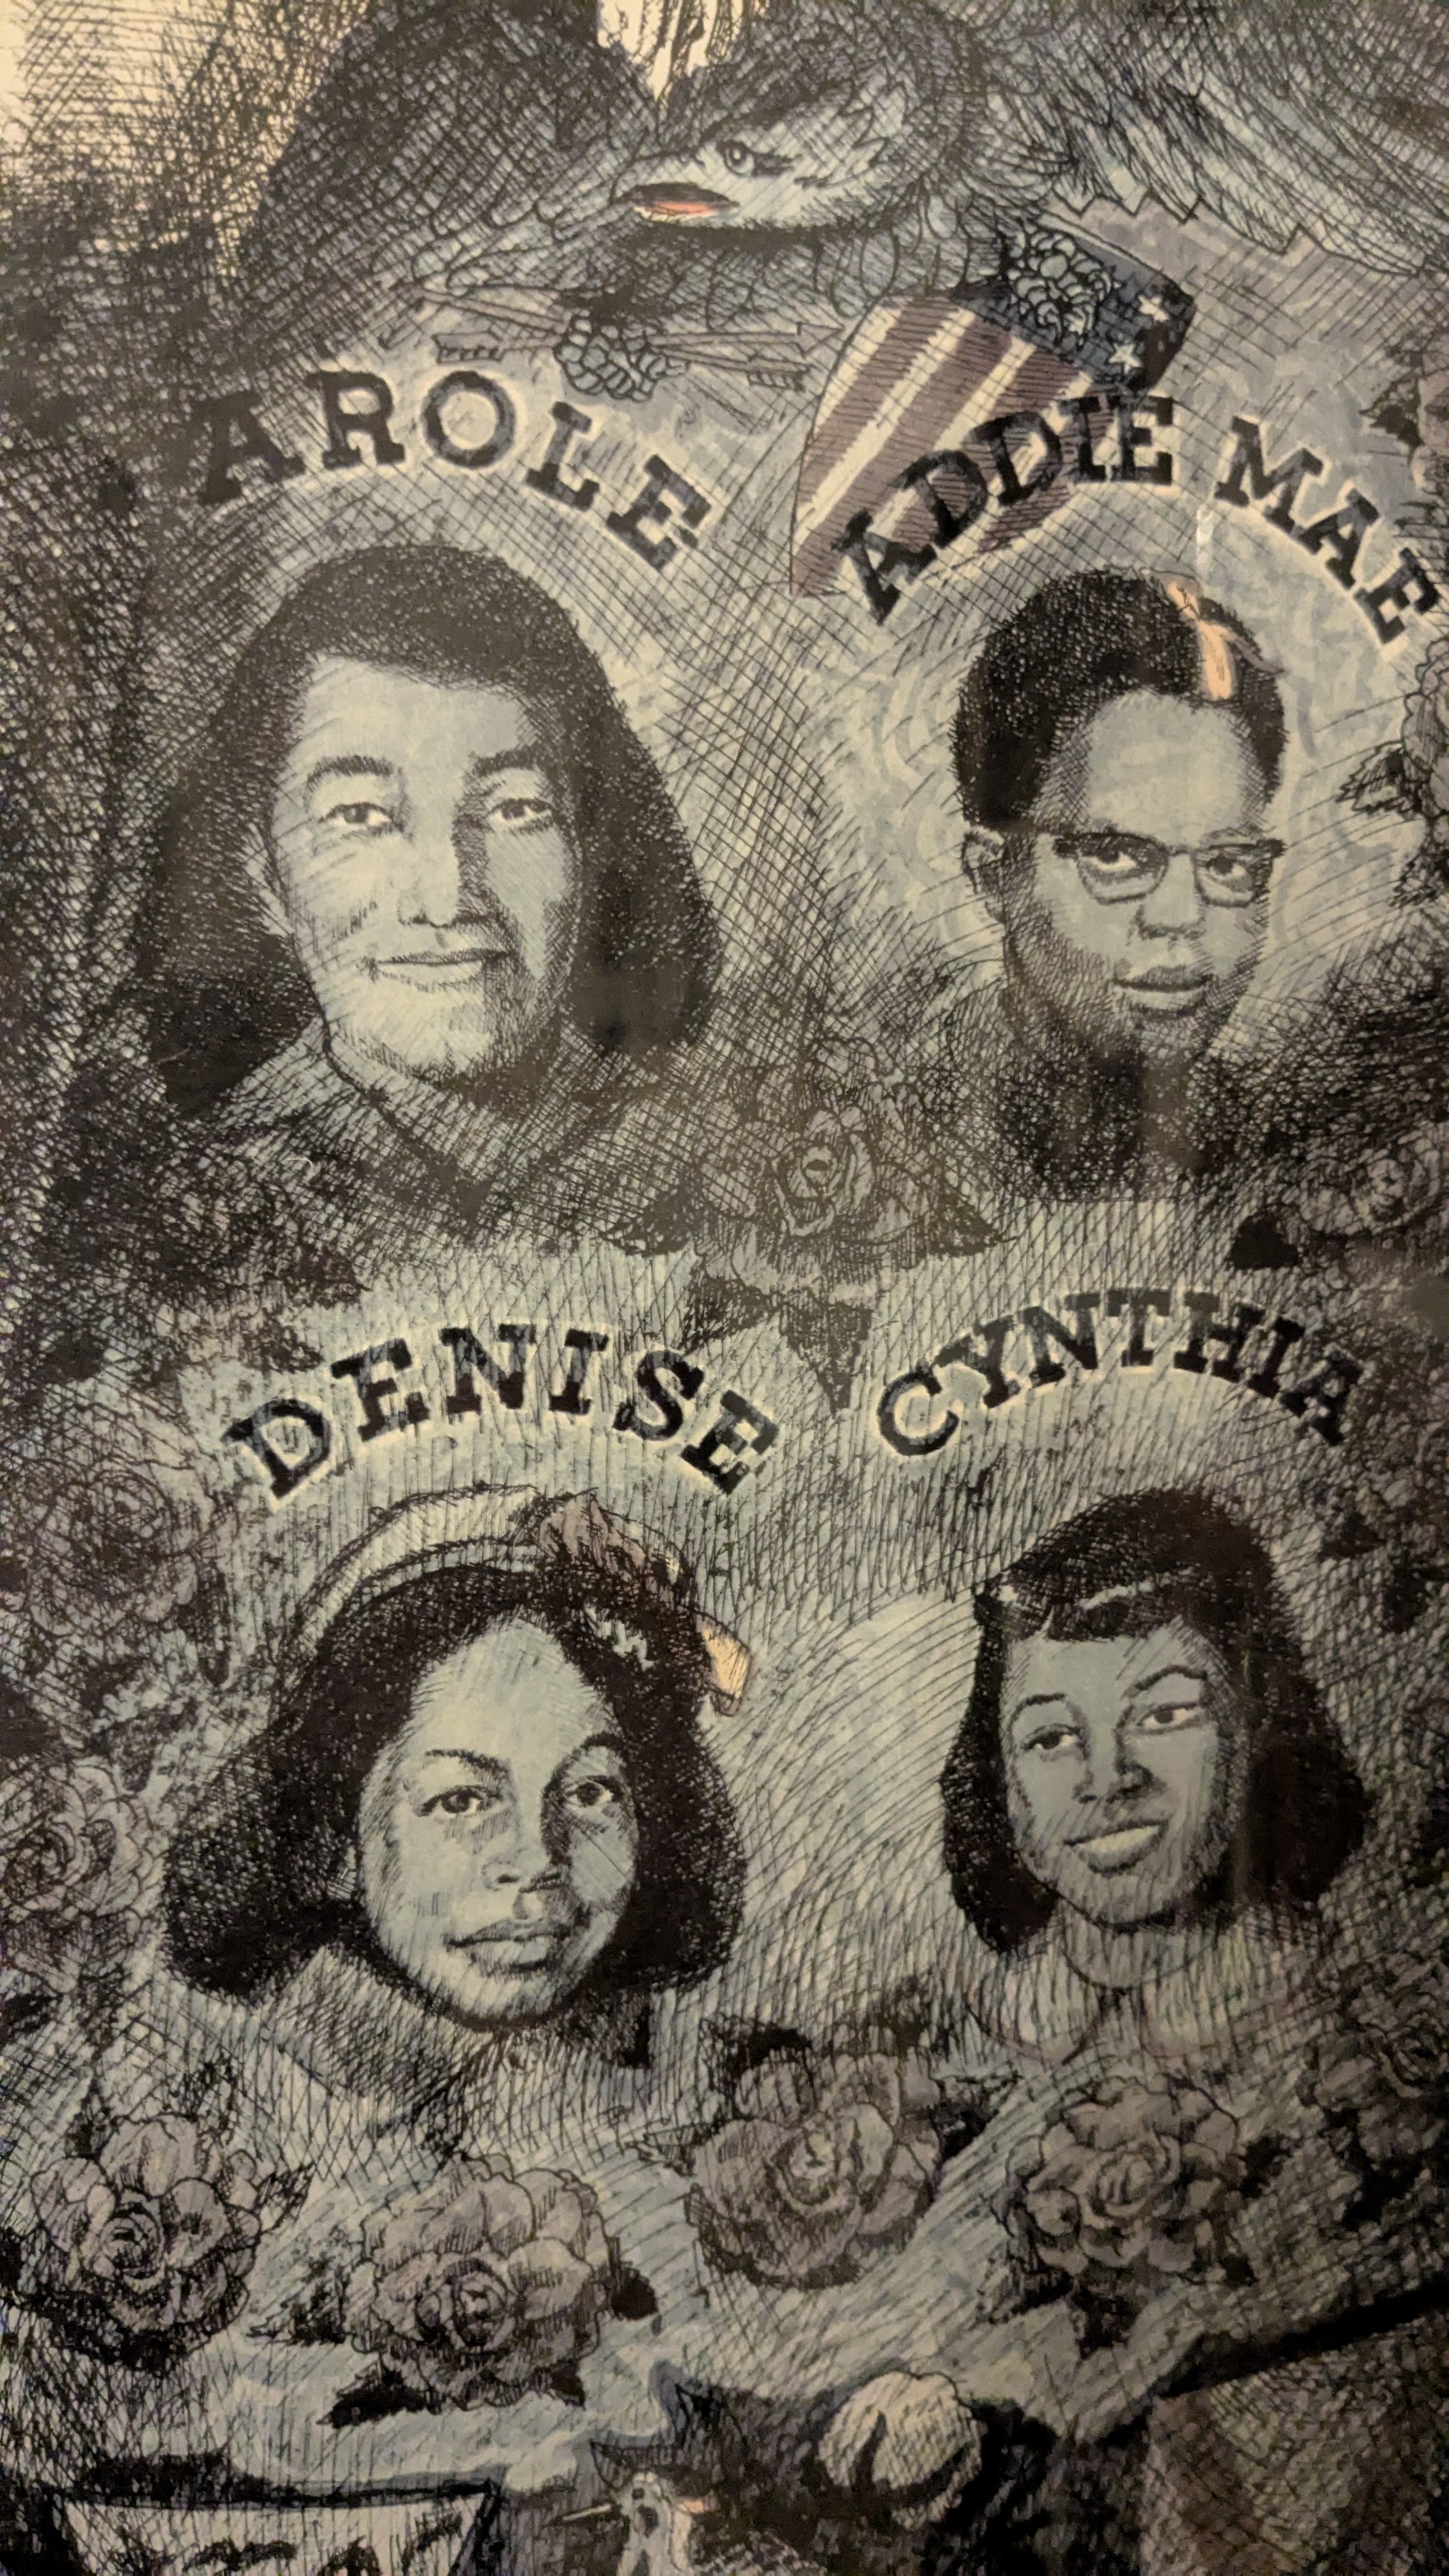 AROLE
ADDIE MAE
DENISE
CYNTHIA